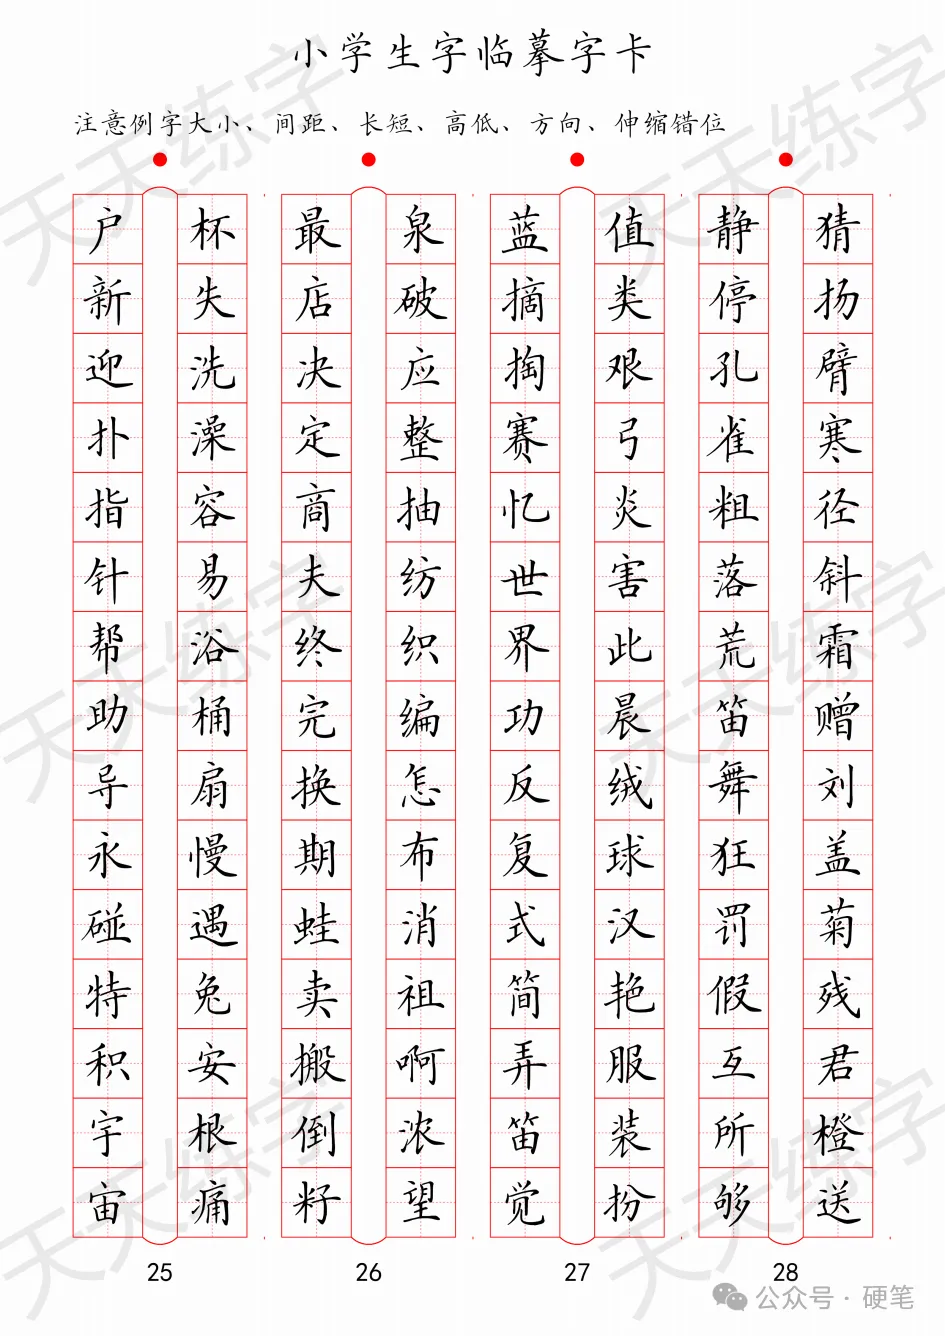 小学生字临摹字卡
注意例字大小、间距、长短、高低、方向、伸缩错位
户 杯 最 泉 蓝 值 静 猜
新 失 店 破 摘 类 停 扬
迎 洗 决 应 掏 艰 孔 臂
扑 澡 定 整 赛 弓 雀 寒
指 容 商 抽 忆 炎 粗 径
针 易 夫 纺 世 害 落 斜
帮 浴 终 织 界 此 荒 霜
助 桶 完 编 功 晨 笛 赠
导 扇 换 怎 反 绒 舞 刘
永 慢 期 布 复 球 狂 盖
碰 遇 蛙 消 式 汉 罚 菊
特 兔 卖 祖 简 艳 假 残
积 安 搬 啊 弄 服 互 君
宇 根 倒 浓 笛 装 所 橙
宙 痛 籽 望 觉 扮 够 送
25 26 27 28
公众号·硬笔
天天练字
天天练字
天天练字
天天练字
天天练字
天天练字